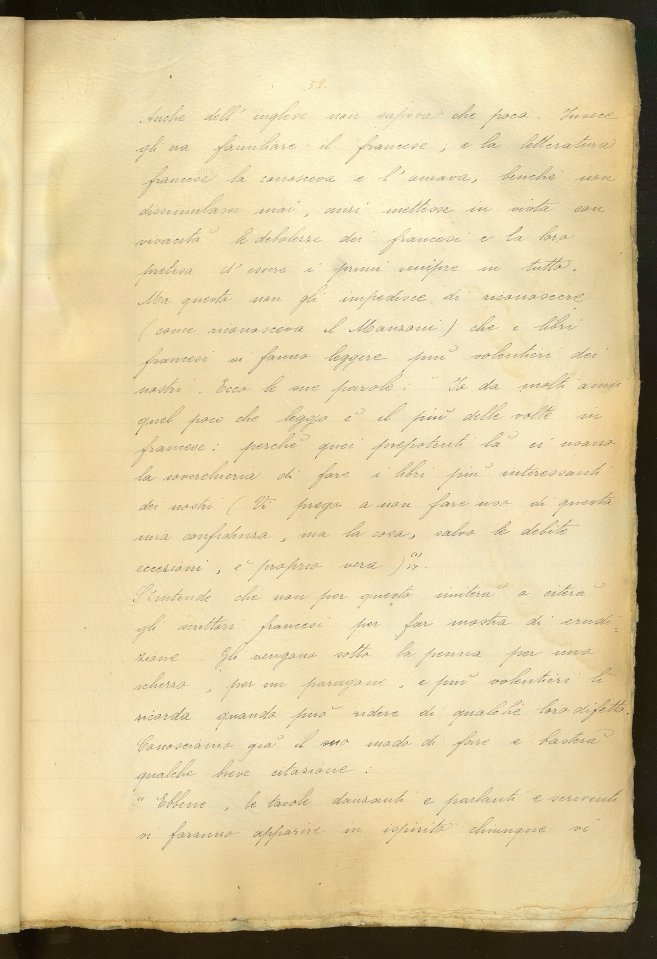 52.
Anche dell' inglese non sapeva che poco. Invece
gli era famigliare il francese, e la letteratura
francese la conosceva e l'amava, benchè non
dissimulasse mai, anzi mettesse in vista con
vivacità le debolezze dei francesi e la loro
pretesa d'essere i primi sempre in tutto.
Ma questo non gli impedisce di riconoscere
(come riconosceva il Manzoni) che i libri
francesi si fanno leggere più volentieri dei
nostri. Ecco le sue parole: " Io da molti anni
quel poco che leggo è il più delle volte in
francese: perchè quei prepotenti là ci usano
la soverchieria di fare i libri più interessanti
dei nostri (Ti prego a non fare uso di questa
mia confidenza, ma la cosa, salvo le debite
eccezioni, è proprio vera)".
S'intende che non per questo imiterà o citerà
gli scrittori francesi per far mostra di erudi-
zione. Gli vengono sotto la penna per uno
scherzo, per un paragone, e più volentieri li
ricorda quando può ridere di qualche loro difetto.
Conosciamo già il suo modo di fare e basterà
qualche breve citazione:
" Ebbene, le tavole danzanti e parlanti e scriventi
vi faranno apparire in ispirito chiunque vi